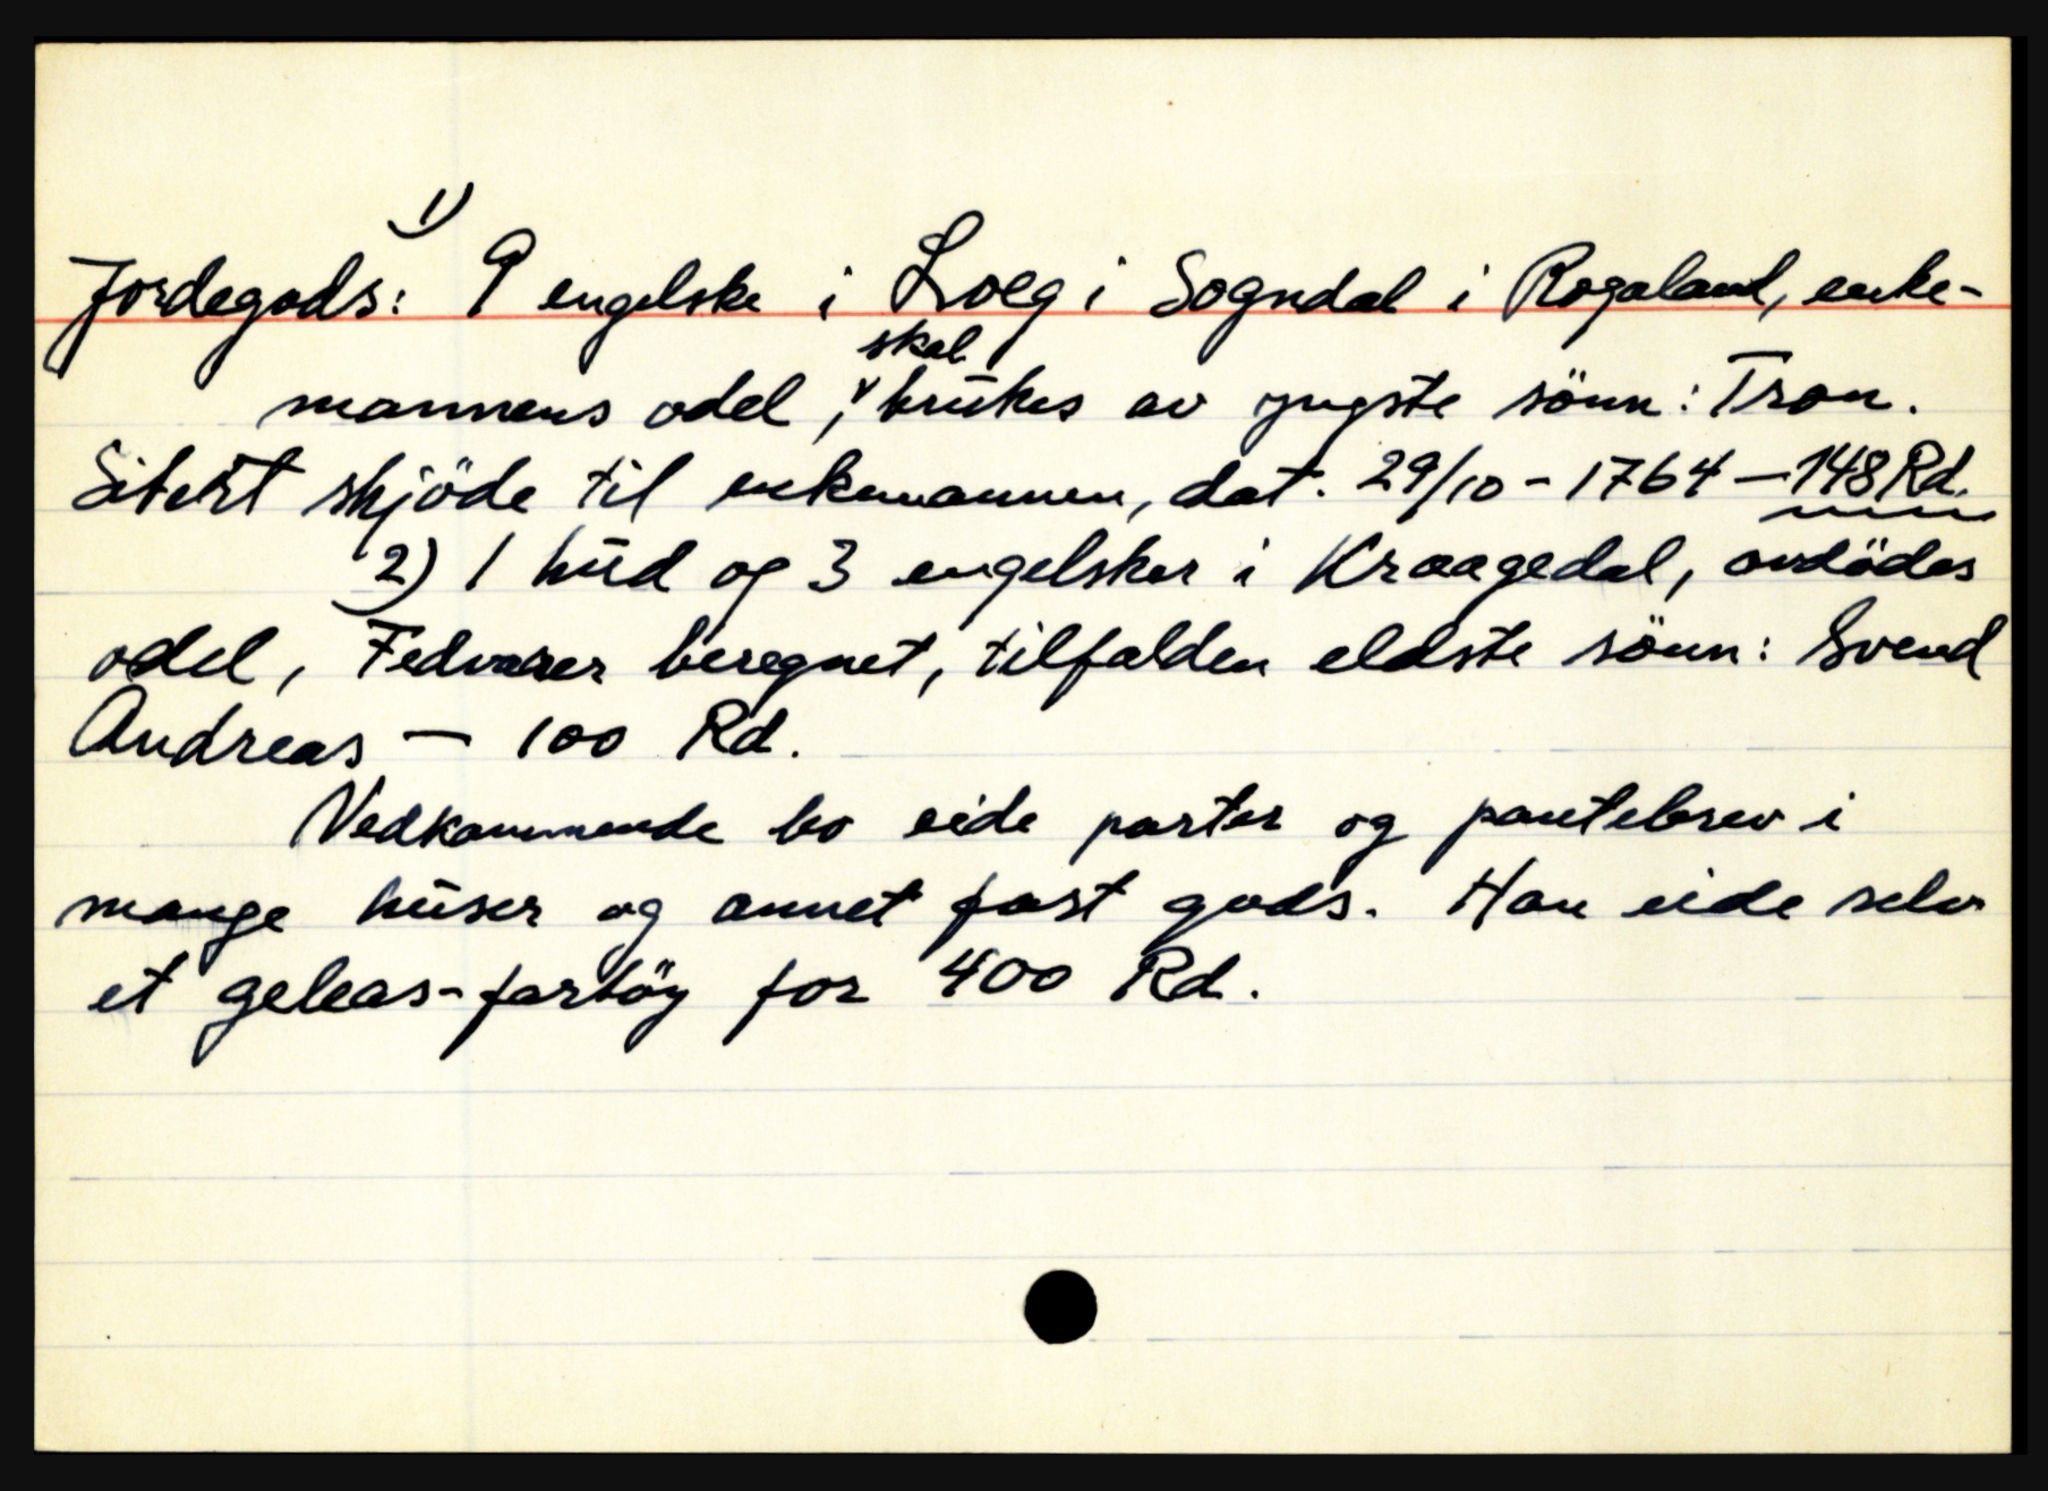 Jordegods: 1) 9 engelske i Loeg i Sogndal i Rogaland, enke-
mannens odel, skal brukes av yngste sönn: Tron.
Sitert skjöde til enkemannen, dat. 29/10 - 1764 — 148 Rd.
2) 1 hud og 3 engelsker i Kraagedal, avdödes
odel, Fedvarer beregnet, tilfalden eldste sönn: Svend
Andreas — 100 Rd.
Vedkommende bo eide parter og pantebrev i
mange huser og annet fast gods. Han eide selv
et geleas-fartöy for 400 Rd.